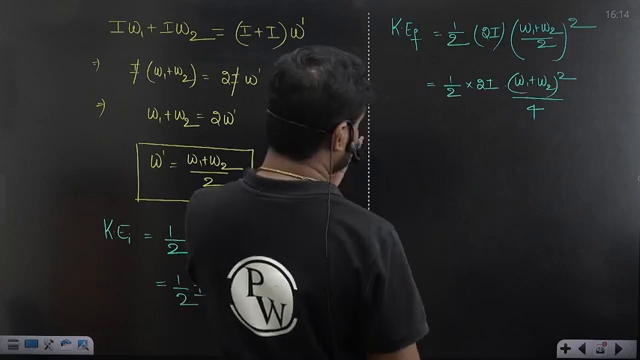 Iω₁ + Iω₂ = (I+I)ω'
⇒ I(ω₁+ω₂) = 2Iω'
⇒ ω₁+ω₂ = 2ω'
ω' = (ω₁+ω₂)/2
K.Eᵢ = 1/2
= 1/2
16:14
K.E_f = 1/2 (2I) ((ω₁+ω₂)/2)²
= 1/2 × 2I (ω₁+ω₂)²/4
PW